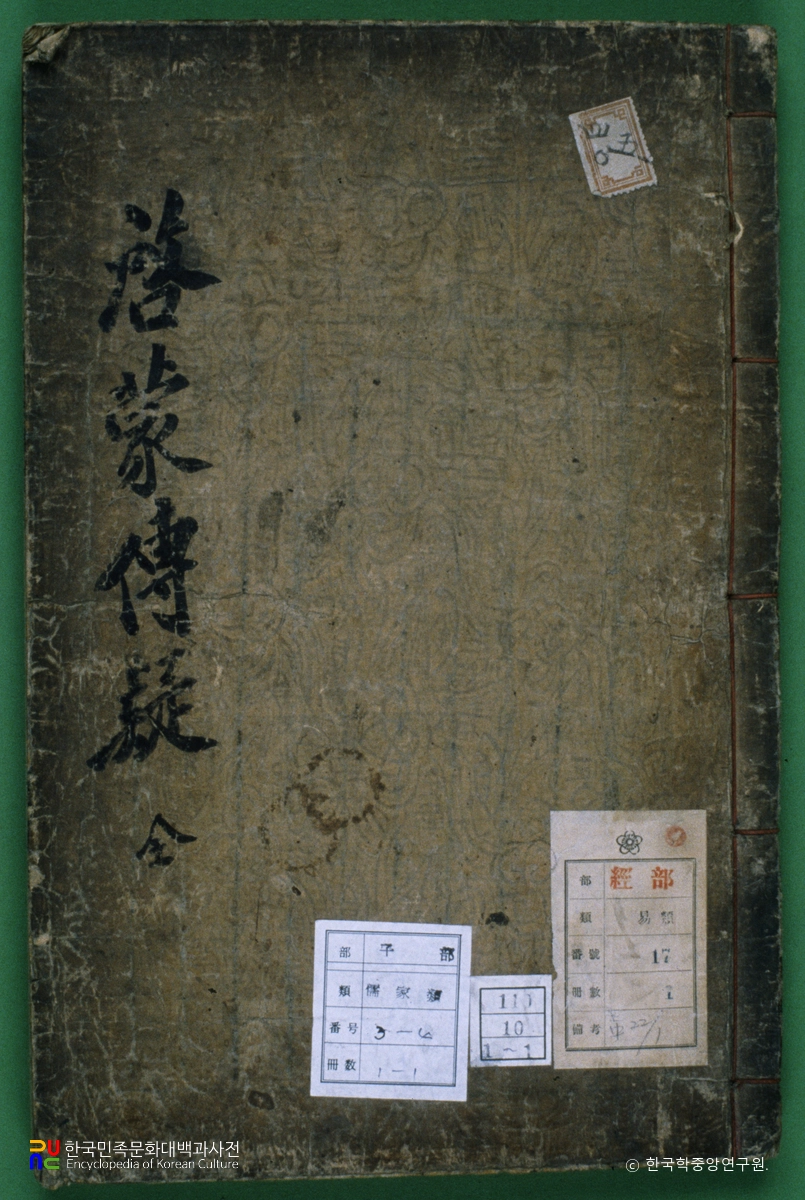 啓蒙傳疑 全
四五
〇
部 子 部
類 儒家類
番号 3-6
冊数 1-1
111
10
1~1
部 經部
類 易類
番號 17
冊數 1
備考
한국민족문화대백과사전
Encyclopedia of Korean Culture
ⓒ 한국학중앙연구원.